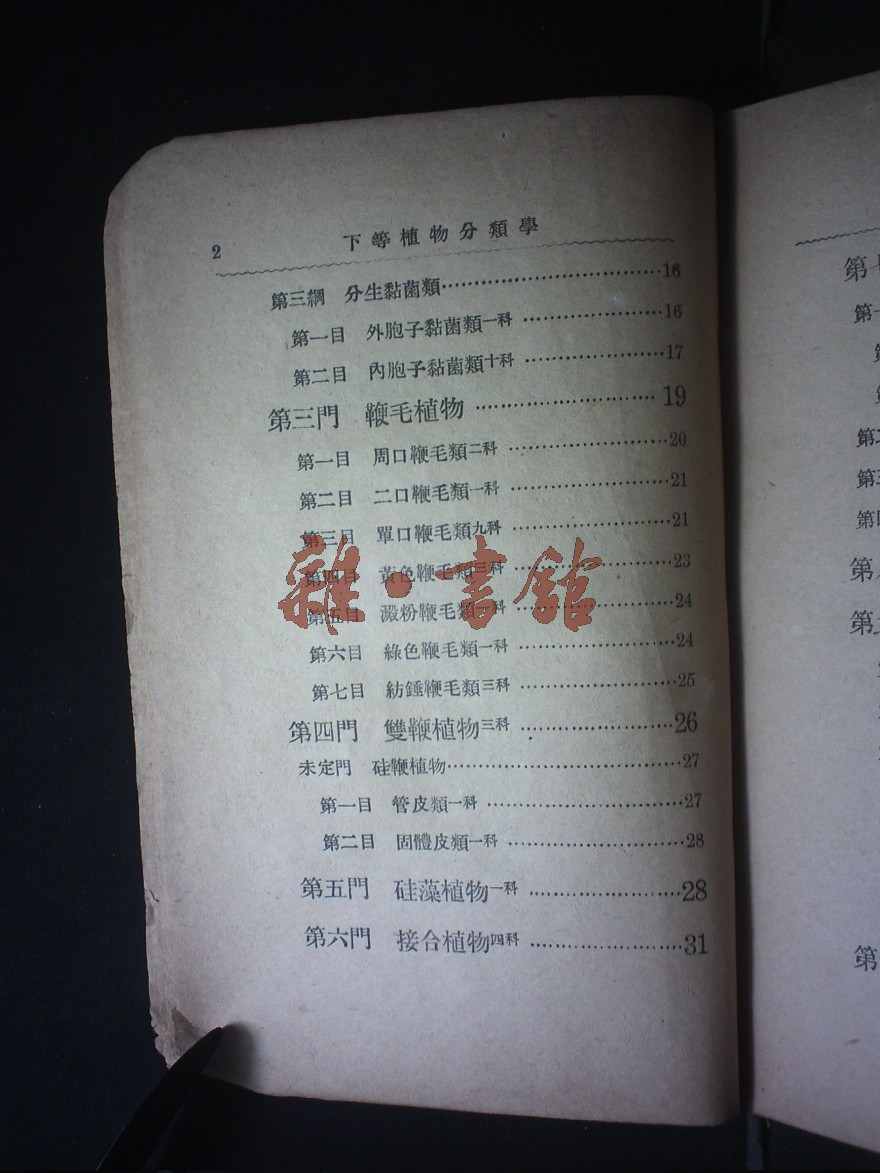 2 下等植物分類學
第三綱 分生黏菌類……………………………16
第一目 外胞子黏菌類一科……………………16
第二目 內胞子黏菌類十科……………………17
第三門 鞭毛植物……………………………19
第一目 周口鞭毛類二科………………………20
第二目 二口鞭毛類一科………………………21
第三目 單口鞭毛類九科………………………21
第四目 黃色鞭毛類三科………………………23
第五目 澱粉鞭毛類一科………………………24
第六目 綠色鞭毛類一科………………………24
第七目 紡錘鞭毛類三科………………………25
第四門 雙鞭植物三科…………………………26
未定門 硅鞭植物………………………………27
第一目 管皮類一科……………………………27
第二目 固體皮類一科…………………………28
第五門 硅藻植物一科…………………………28
第六門 接合植物四科…………………………31
雜·書館
第
第一
第
第
第二
第三
第四
第
第
第